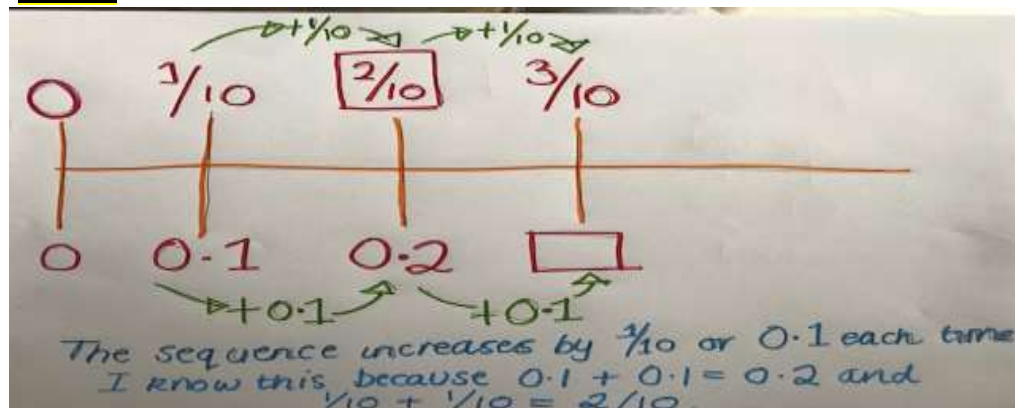 +1/10 +1/10
0 1/10 2/10 3/10
0 0.1 0.2
+0.1 +0.1
The sequence increases by 1/10 or 0.1 each time
I know this because 0.1 + 0.1 = 0.2 and
1/10 + 1/10 = 2/10.